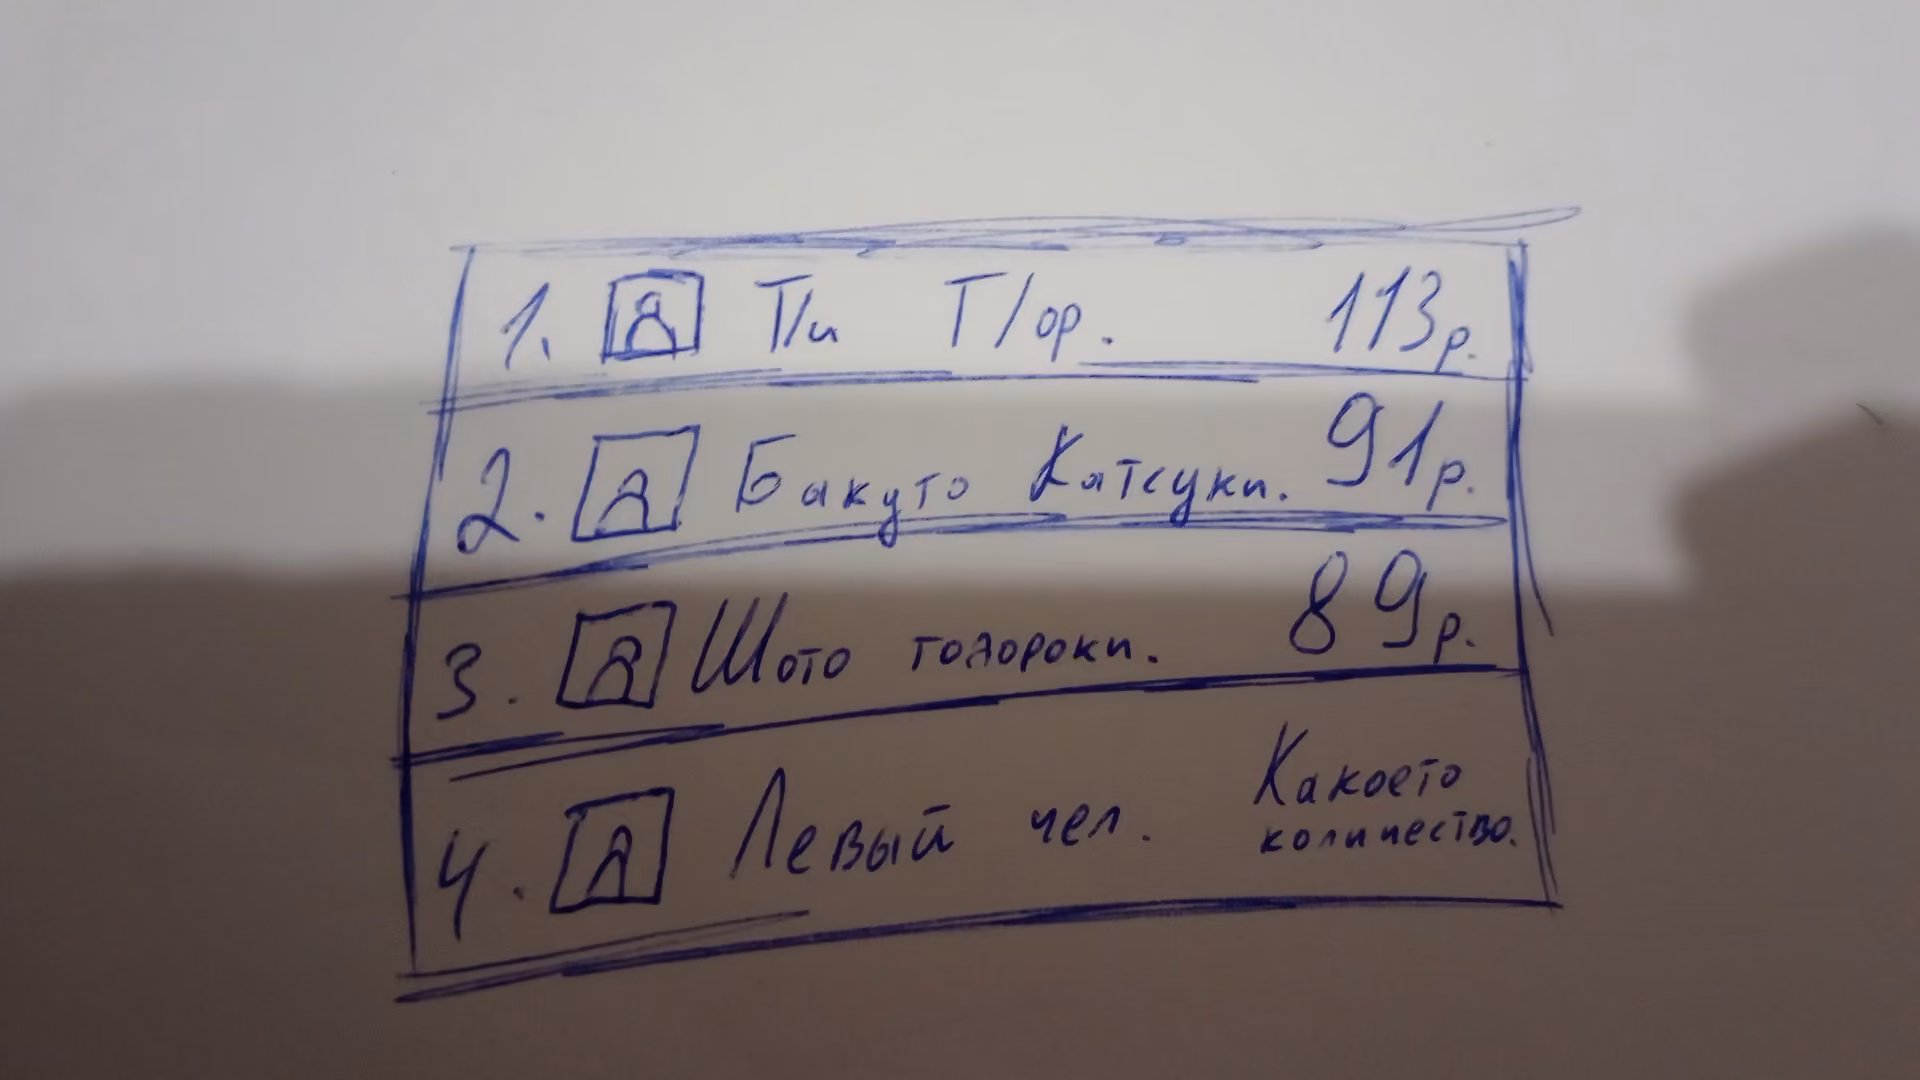 1. Т/и Т/ор. 113р.
2. Бакуго Катсуки. 91р.
3. Шото тодороки. 89р.
4. Левый чел. Какоето
количество.